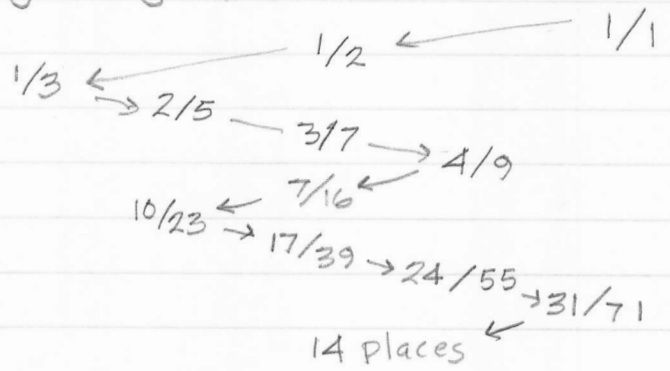 1/1
1/2
1/3
2/5
3/7
4/9
7/16
10/23
17/39
24/55
31/71
14 places